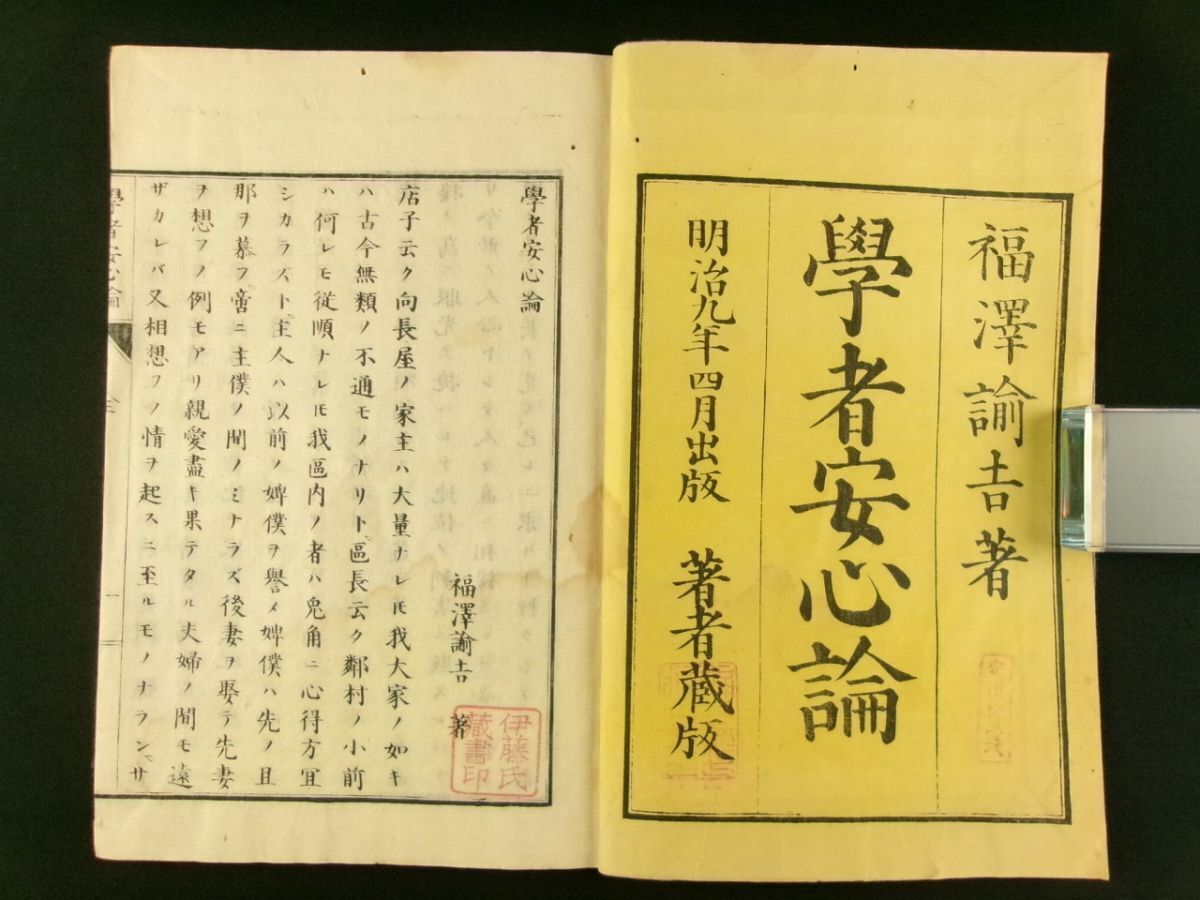 福澤諭吉著
學者安心論
明治九年四月出版 著者藏版
學者安心論
福澤諭吉 著
伊藤氏
藏書印
店子云ク向長屋ノ家主ハ大量ナレ𪜈我大家ノ如キ
ハ古今無類ノ不通モノナリト區長云ク鄰村ノ小前
ハ何レモ從順ナレ𪜈我區内ノ者ハ兎角ニ心得方宜
シカラズト主人ハ以前ノ婢僕ヲ譽メ婢僕ハ先ノ且
那ヲ慕フ啻ニ主僕ノ間ノミナラズ後妻ヲ娶テ先妻
ヲ想フノ例モアリ親愛盡キ果テタル夫婦ノ間モ遠
ザカレバ又相想フノ情ヲ起スニ至ルモノナランサ
學者安心論